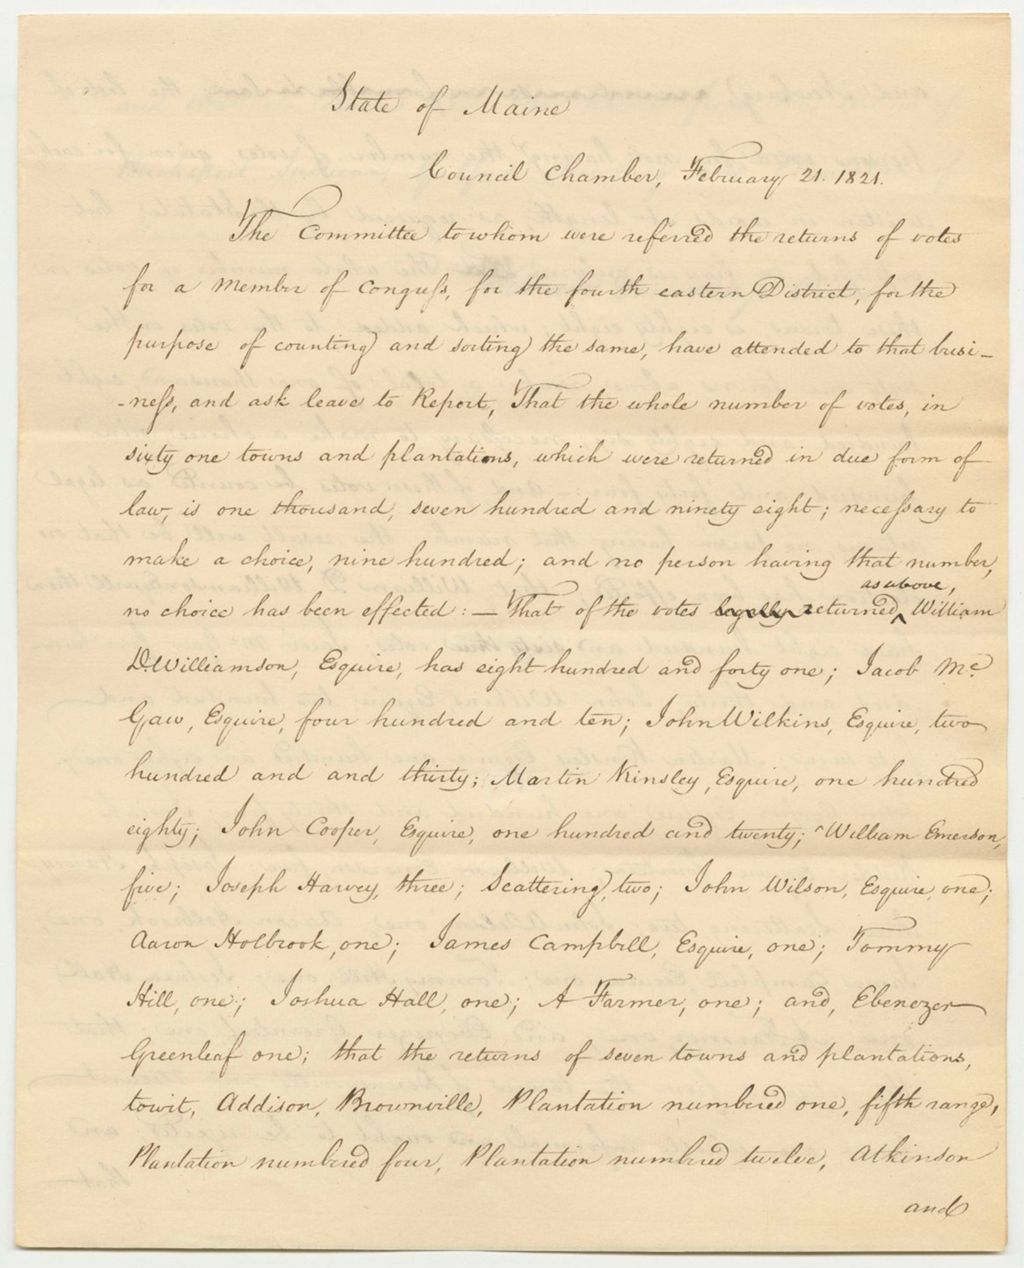 State of Maine
Council Chamber, February 21. 1821.
The Committee to whom were referred the returns of votes
for a Member of Congress, for the fourth eastern District, for the
purpose of counting and sorting the same, have attended to that busi–
–ness, and ask leave to Report, That the whole number of votes, in
sixty one towns and plantations, which were returned in due form of
law, is one thousand, seven hundred and ninety eight; necessary to
make a choice, nine hundred; and no person having that number,
as above,
no choice has been effected: — That of the votes legally returned ^ William
D. Williamson, Esquire, has eight hundred and forty one; Jacob Mc.
Gaw, Esquire, four hundred and ten; John Wilkins, Esquire, two
hundred and and thirty; Martin Kinsley, Esquire, one hundred
eighty; John Cooper, Esquire, one hundred and twenty; William Emerson,
five; Joseph Harvey, three; Scattering, two; John Wilson, Esquire, one;
Aaron Holbrook, one; James Campbell, Esquire, one; Tommy
Hill, one; Joshua Hall, one; A Farmer, one; and, Ebenezer
Greenleaf one; that the returns of seven towns and plantations,
towit, Addison, Brownville, Plantation numbered one, fifth range,
Plantation numbered four, Plantation numbered twelve, Atkinson
and